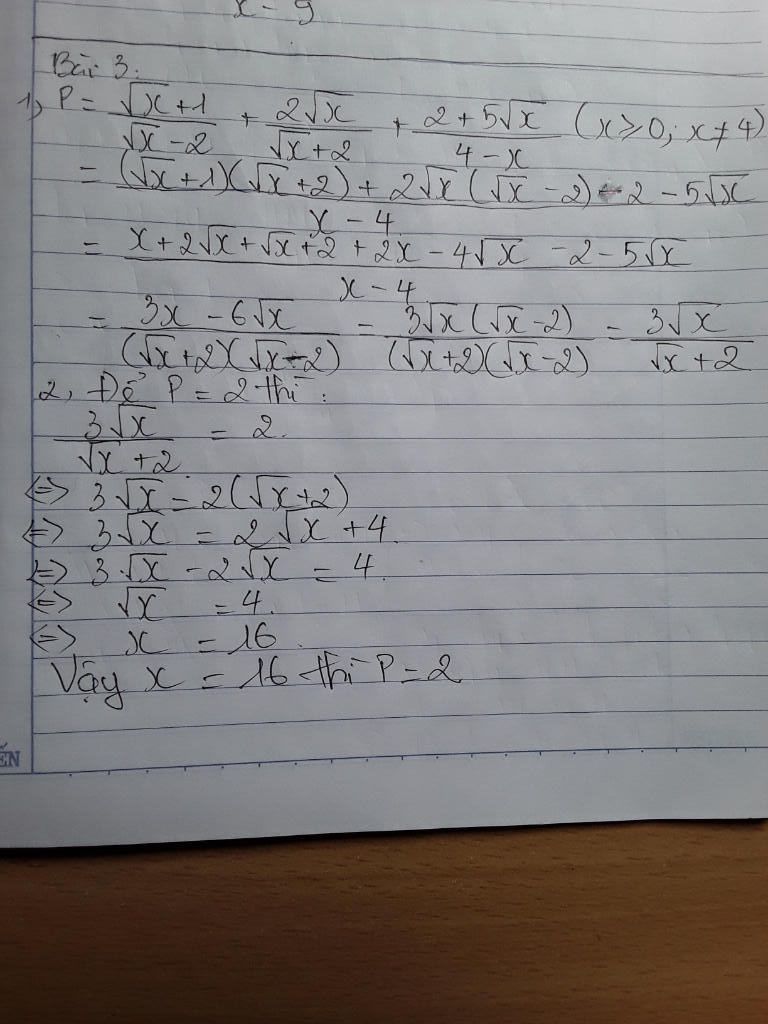 x - 9
Bài 3:
1, P = \frac{\sqrt{x}+1}{\sqrt{x}-2} + \frac{2\sqrt{x}}{\sqrt{x}+2} + \frac{2+5\sqrt{x}}{4-x} (x ≥ 0; x ≠ 4)
= \frac{(\sqrt{x}+1)(\sqrt{x}+2) + 2\sqrt{x}(\sqrt{x}-2) - 2 - 5\sqrt{x}}{x-4}
= \frac{x+2\sqrt{x}+\sqrt{x}+2+2x-4\sqrt{x}-2-5\sqrt{x}}{x-4}
= \frac{3x-6\sqrt{x}}{(\sqrt{x}+2)(\sqrt{x}-2)} = \frac{3\sqrt{x}(\sqrt{x}-2)}{(\sqrt{x}+2)(\sqrt{x}-2)} = \frac{3\sqrt{x}}{\sqrt{x}+2}
2, Để P = 2 thì:
\frac{3\sqrt{x}}{\sqrt{x}+2} = 2.
<=> 3\sqrt{x} = 2(\sqrt{x}+2)
<=> 3\sqrt{x} = 2\sqrt{x} + 4.
<=> 3\sqrt{x} - 2\sqrt{x} = 4.
<=> \sqrt{x} = 4.
<=> x = 16.
Vậy x = 16 thì P = 2